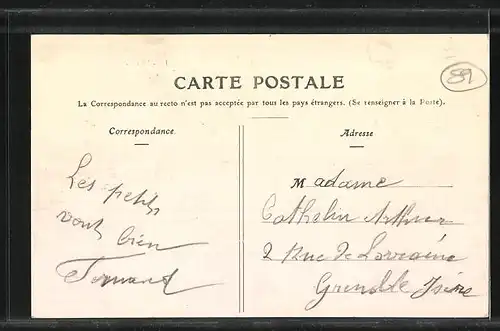 89
CARTE POSTALE
La Correspondance au recto n'est pas acceptée par tous les pays étrangers. (Se renseigner à la Poste).
Correspondance
Les petits
vont bien
Fernand
Adresse
Madame
Cathelin Arthur
2 Rue de Lorraine
Grenoble Isère